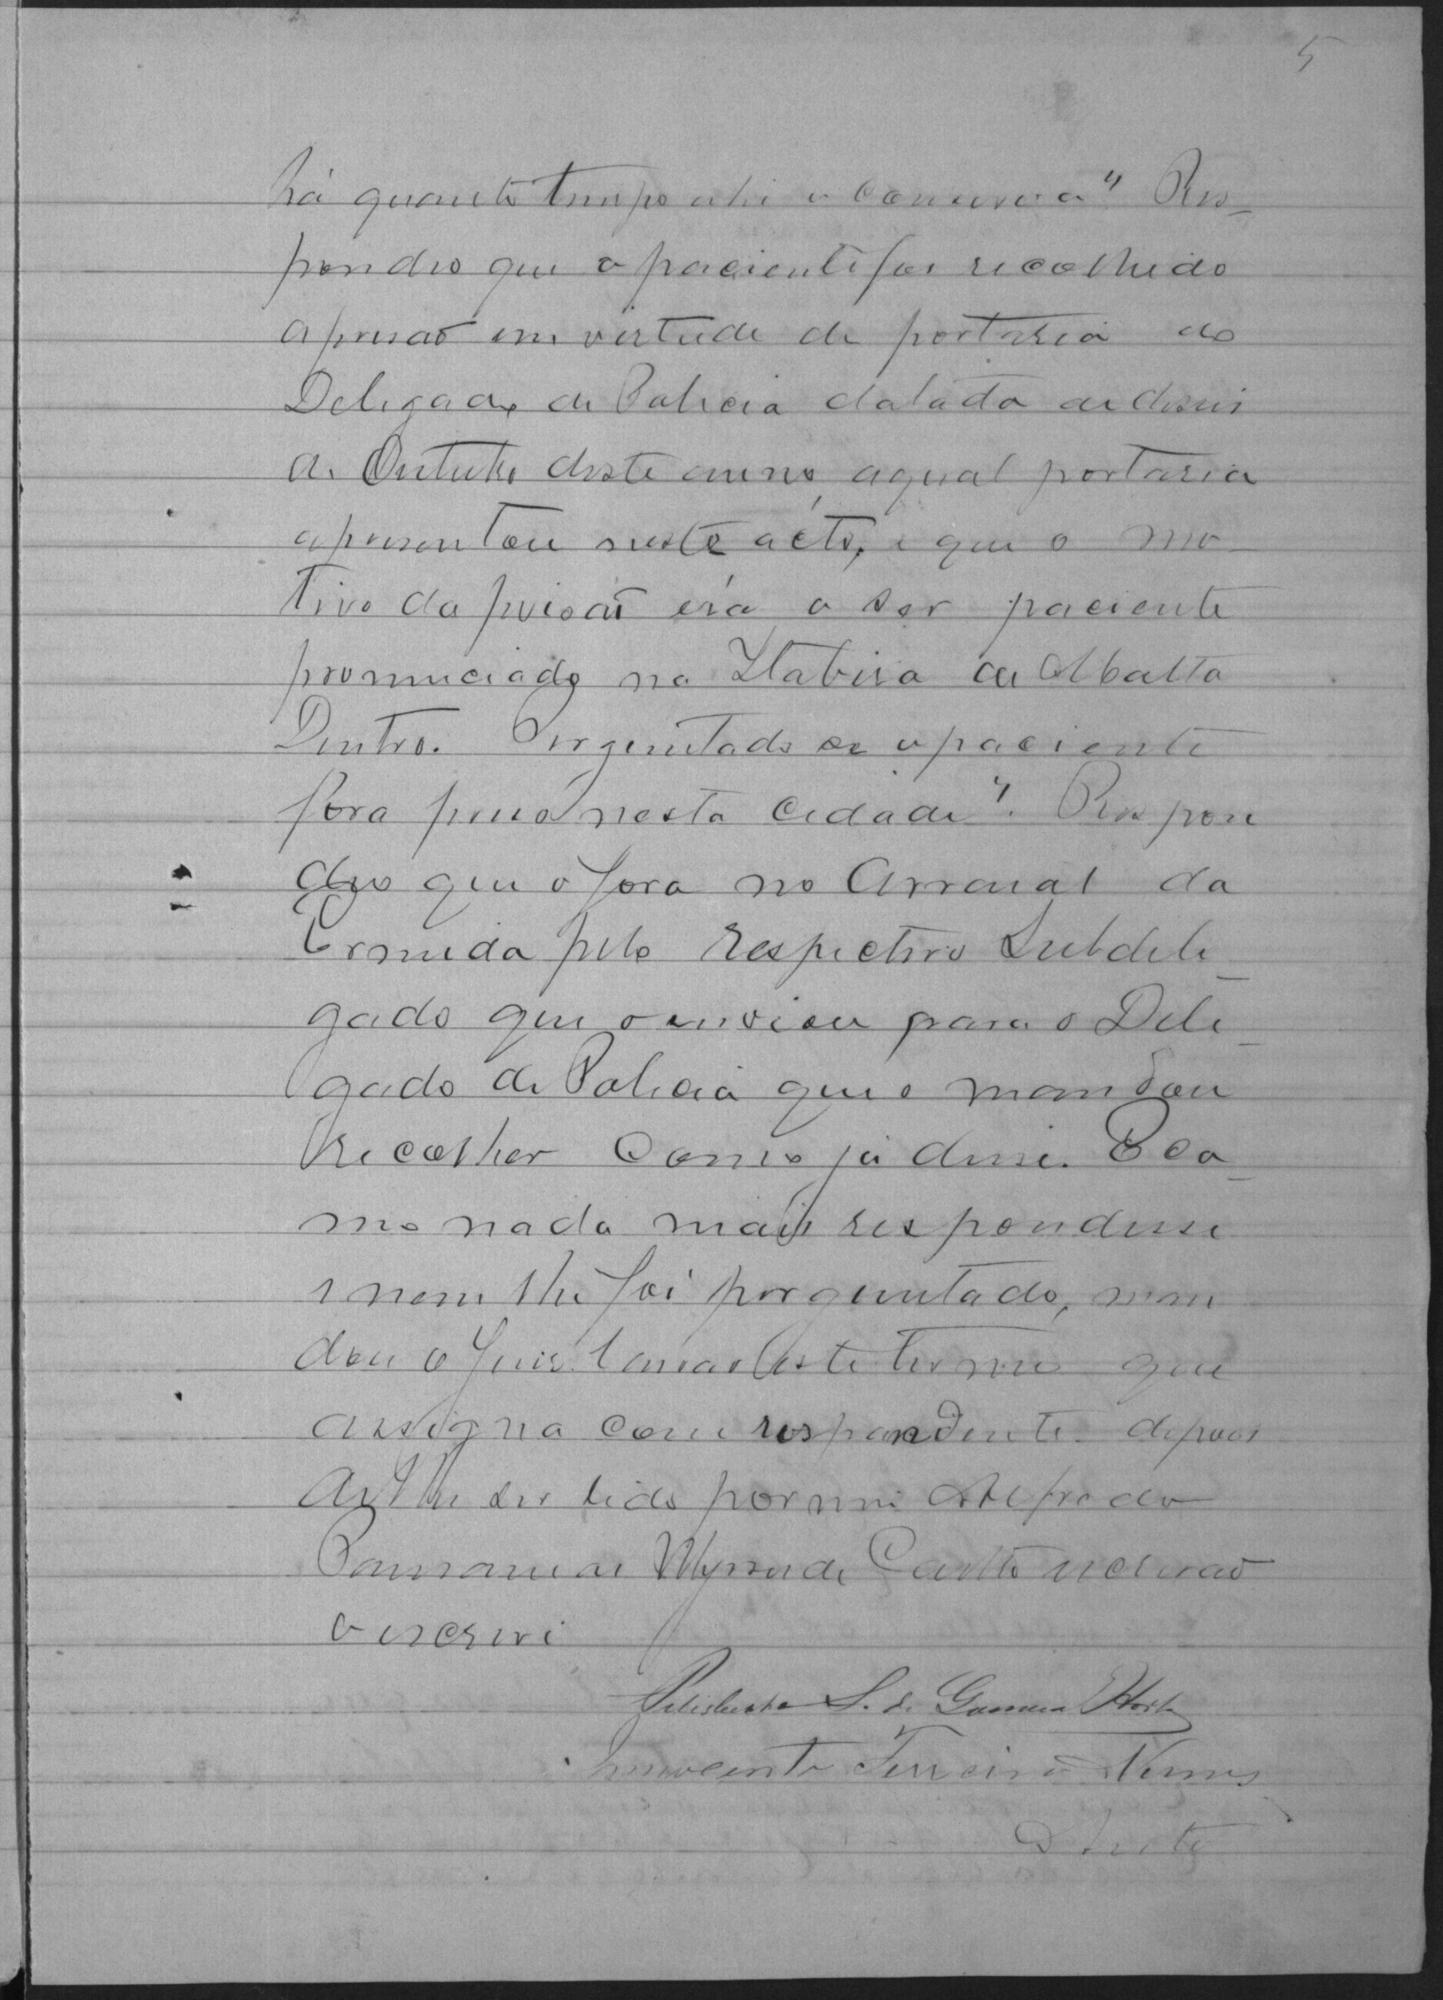 5
há quanto tempo ahi o conserva" Res-
pondeo que o paciente foi recolhido
a prisão em virtude de portaria do
Delegado de Policia datada de deseis
de Outubro deste anno, a qual portaria
apresentou neste acto, e que o mo-
tivo da prisão era o ser paciente
pronunciado na Itabira de Matto
Dentro. Perguntado se o paciente
fora preso nesta cidade". Respon
deo que o fora no Arraial da
Ermida pelo respectivo Subdele-
gado que o enviou para o Dele-
gado de Policia que o mandou
recolher como já disse. E co-
mo nada mais respondesse
e nem lhe foi perguntado, man
dou o Juiz lavrar este termo que
assigna com respondente depois
de lhe ser lido por mim Alfredo
de Castro escrivão
o escrevi
S. de Gama Horta
Innocente Ferreira Nunes